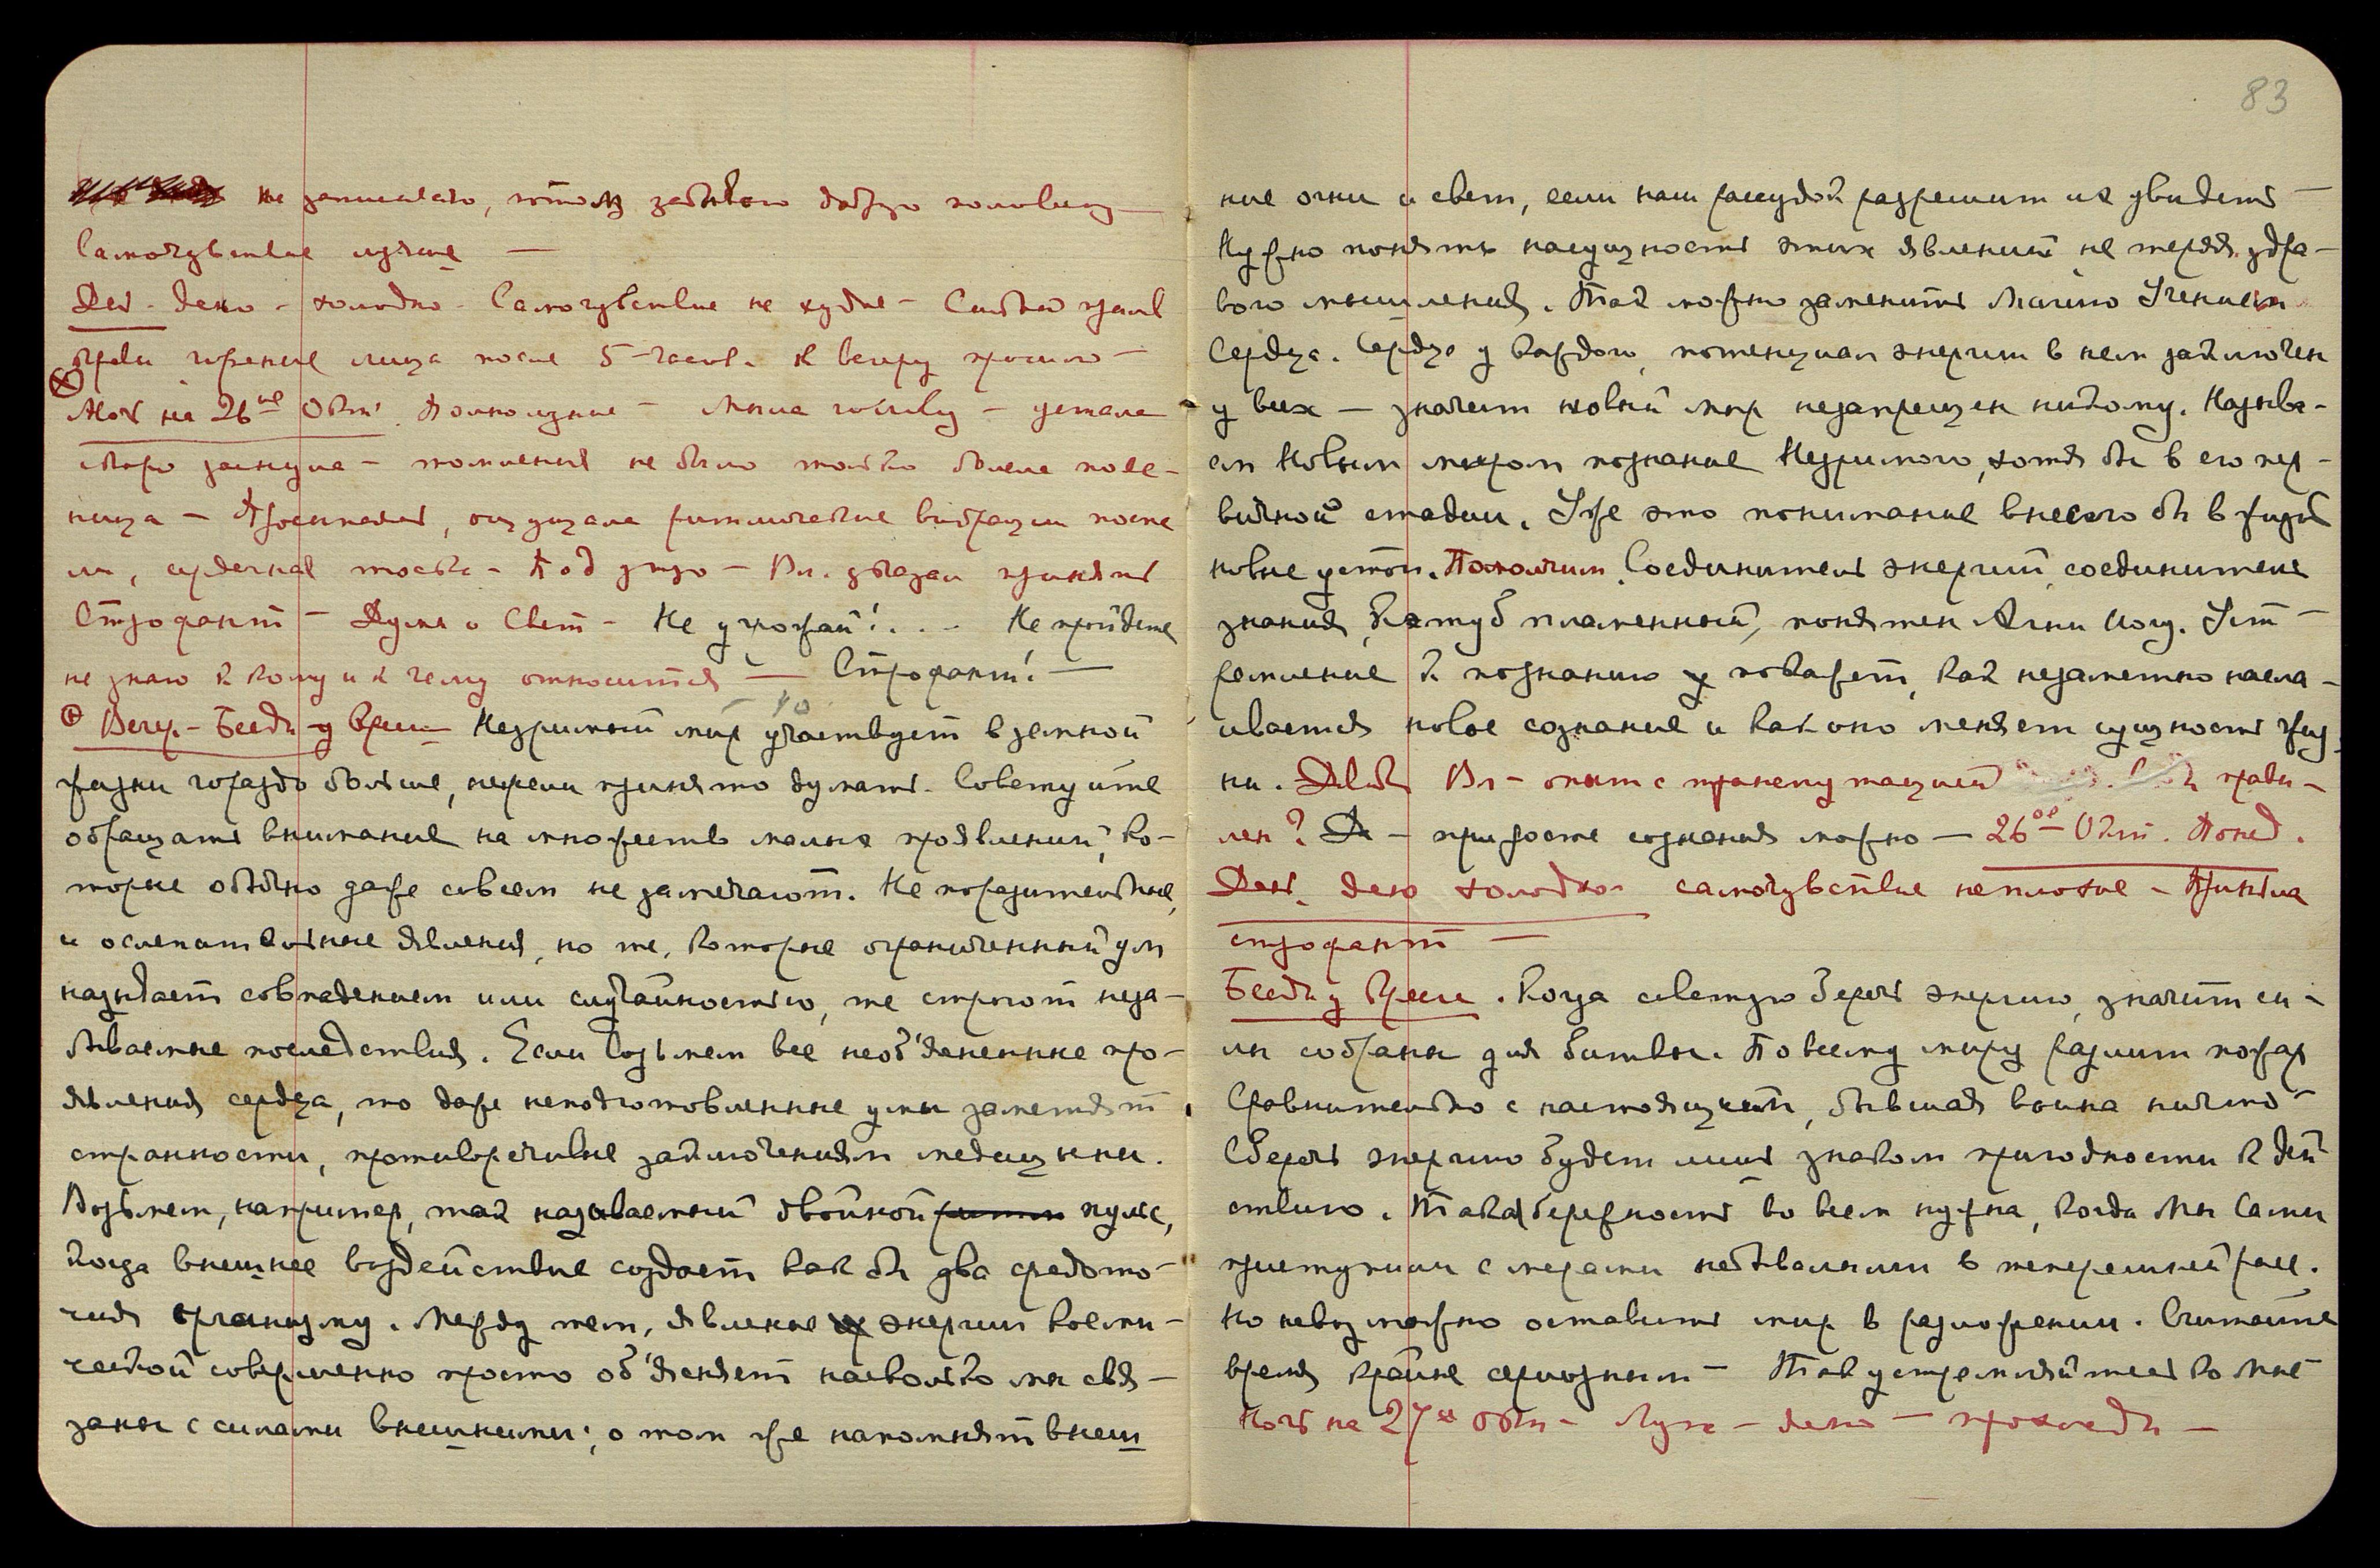 не записала, потом забываю добрую половину —
Самочувствие лучше —
День. Ясно – холодно – Самочувствие не худые – Сильный прилив
крови горение лица после 5 часов. К вечеру прошло —
Ночь на 26ое Окт. Полнолуние – Мыла голову – устала
скоро заснула – томления не было только болела пояс-
ница – Просыпалась, ощущала ритмические вибрации после
них, сердечная тоска – Под утро – Вл. указал принять
Строфант – Думы о Свет – Не угрожай!... – Не пройдете
не знаю к кому и к чему относится — Строфант! —
Вечер. – Беседы у Вреш — Незримый мир участвует в земной
жизни гораздо больше, нежели принято думать. Советуйте
обращать внимание на множество малых проявлений, ко-
торые обычно даже совсем не замечают. Не поразительные,
и ослепительные явления, но те, которые ограниченный ум
называет совпадением или случайностью, те строют неза-
бываемые последствия. Если возьмем все необ'ясненные про-
явления сердца, то даже неподготовленные умы заметят
странности, противоречивые заключениям медицины.
Возьмем, например, так называемый двойной ритм пульс,
когда внешнее воздействие создает как бы два средото-
чия организму. Между тем, явление энергии косми-
ческой совершенно просто об'ясняет насколько мы свя-
заны с силами внешними; о том же напомнят внеш
83
ние огни и свет, если наш рассудок разрешит их увидеть —
Нужно понять насущность этих явлений не теряя здра-
вого мышления. Так можно заменить Магию Учением
Сердца. Сердце у каждого, потенциал энергии в нем заключен
у всех — значит новый мир незапрещен никому. Называ-
ем Новым миром познание Незримого, хотя бы в его пер-
вичной стадии. Уже это понимание внесло бы в жизнь
новые устои. Помолчим. Соединитель энергий, соединитель
знания, Катуб пламенный, понятен Агни Йогу. Уст-
ремление к познанию покажет, как незаметно насла-
ивается новое сознание и как оно меняет сущность жиз-
ни. Вл – опыт с транспутацией прави-
лен? Да – при росте сознания можно — 26ое Окт. Понед.
День. Ясно холодно – самочувствие неплохие – Приняла
строфант —
Беседы у Вреш. Когда советую беречь энергию, значит си-
лы собраны для битвы. По всему миру разлит пожар
Сравнительно с настоящим, бывшая война ничто —
Сберечь энергию будет лишь знаком пригодности к дей
ствию. Такая бережность во всем нужна, когда Мы Сами
приступили с мерами небывалыми в теперешней расе.
Но невозможно оставить мир в разложении. Считайте
время крайне серьезным — Так устремляйтесь ко Мне —
Ночь на 27ое Окт – Луна – ясно – прохлады —